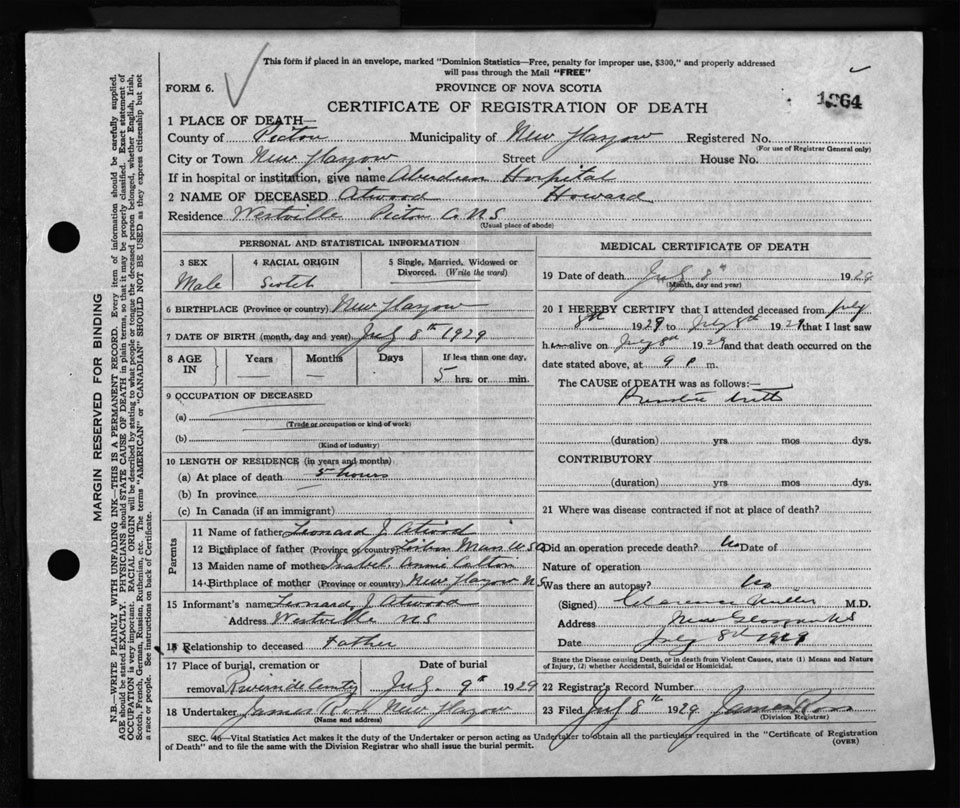 This form if placed in an envelope, marked "Dominion Statistics—Free, penalty for improper use, $300," and properly addressed
will pass through the Mail "FREE"
FORM 6.
PROVINCE OF NOVA SCOTIA
CERTIFICATE OF REGISTRATION OF DEATH
1264
1 PLACE OF DEATH—
County of Pictou Municipality of New Glasgow Registered No.
(For use of Registrar General only)
City or Town New Glasgow Street House No.
If in hospital or institution, give name Aberdeen Hospital
2 NAME OF DECEASED Atwood Howard
Residence Westville Pictou Co. N S
(Usual place of abode)
PERSONAL AND STATISTICAL INFORMATION
3 SEX 4 RACIAL ORIGIN 5 Single, Married, Widowed or
Divorced. (Write the word)
Male Scotch
6 BIRTHPLACE (Province or country) New Glasgow
7 DATE OF BIRTH (month, day and year) July 8th 1929
8 AGE IN Years Months Days If less than one day,
5 hrs. or min.
9 OCCUPATION OF DECEASED
(a)
(Trade or occupation or kind of work)
(b)
(Kind of industry)
10 LENGTH OF RESIDENCE (in years and months)
(a) At place of death 5 hours
(b) In province
(c) In Canada (if an immigrant)
Parents
11 Name of father Leonard J. Atwood
12 Birthplace of father (Province or country) Mass U.S.A
13 Maiden name of mother Isabel Annie
14 Birthplace of mother (Province or country) New Glasgow N S
15 Informant's name Leonard J. Atwood
Address Westville N.S
16 Relationship to deceased Father
17 Place of burial, cremation or Date of burial
removal Riverside July 9th 1929
18 Undertaker James Ross New Glasgow
(Name and address)
MEDICAL CERTIFICATE OF DEATH
19 Date of death July 8th 1929
(Month, day and year)
20 I HEREBY CERTIFY that I attended deceased from July
8th 1929 to July 8th 1929 that I last saw
h alive on July 8th 1929 and that death occurred on the
date stated above, at 9 P m.
The CAUSE of DEATH was as follows:—
(duration) yrs mos dys.
CONTRIBUTORY
(duration) yrs mos dys.
21 Where was disease contracted if not at place of death?
Did an operation precede death? No Date of
Nature of operation
Was there an autopsy? No
(Signed) Clarence Miller M.D.
Address New Glasgow N.S
Date July 8th 1929
State the Disease causing Death, or in death from Violent Causes, state (1) Means and Nature
of Injury, (2) whether Accidental, Suicidal or Homicidal.
22 Registrar's Record Number
23 Filed July 8th 1929 James Ross
(Division Registrar)
SEC. 46—Vital Statistics Act makes it the duty of the Undertaker or person acting as Undertaker to obtain all the particulars required in the "Certificate of Registration
of Death" and to file the same with the Division Registrar who shall issue the burial permit.
(OVER)
MARGIN RESERVED FOR BINDING
N.B—WRITE PLAINLY WITH UNFADING INK—THIS IS A PERMANENT RECORD. Every item of information should be carefully supplied.
AGE should be stated EXACTLY. PHYSICIANS should STATE CAUSE OF DEATH in plain terms, so that it may be properly classified. Exact statement of
OCCUPATION is very important. RACIAL ORIGIN will be described by stating to what people or tongue the deceased person belonged, whether English, Irish,
Scotch, French, German, Russian, Ruthenian, etc. The terms "AMERICAN" or "CANADIAN" SHOULD NOT BE USED as they express citizenship but not
a race or people. See instructions on back of Certificate.